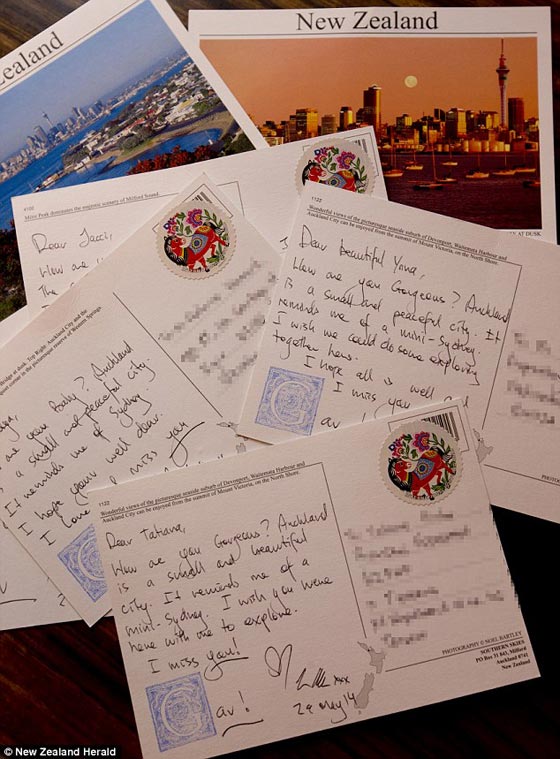 Zealand
New Zealand
AT DUSK
#100
Mitre Peak dominates the majestic scenery of Milford Sound.
Dear Jacci,
How are
The
1122
Wonderful views of the picturesque seaside suburb of Devonport, Waitemata Harbour and
Auckland City can be enjoyed from the summit of Mount Victoria, on the North Shore.
Dear beautiful
How are you Gorgeous? Auckland
is a small and peaceful city. It
reminds me of a mini-Sydney.
I wish we could do some exploring
together here.
I hope all is well
I miss you
av
Bridge at dusk. Top Right: Auckland City and the
in the picturesque reserve of Western Springs.
are you Baby? Auckland
a small and peaceful city.
It reminds me of Sydney
I hope your well dear.
I love I miss you
1122
Wonderful views of the picturesque seaside suburb of Devonport, Waitemata Harbour and
Auckland City can be enjoyed from the summit of Mount Victoria, on the North Shore.
Dear Tatiana,
How are you Gorgeous? Auckland
is a small and beautiful
city. It reminds me of a
mini-Sydney. I wish you were
here with me to explore.
I miss you!
xxx
Gav!
29 May 14
PHOTOGRAPHY © NOEL BARTLEY
SOUTHERN SKIES
PO Box 31 843, Milford
Auckland 0741
New Zealand
© New Zealand Herald